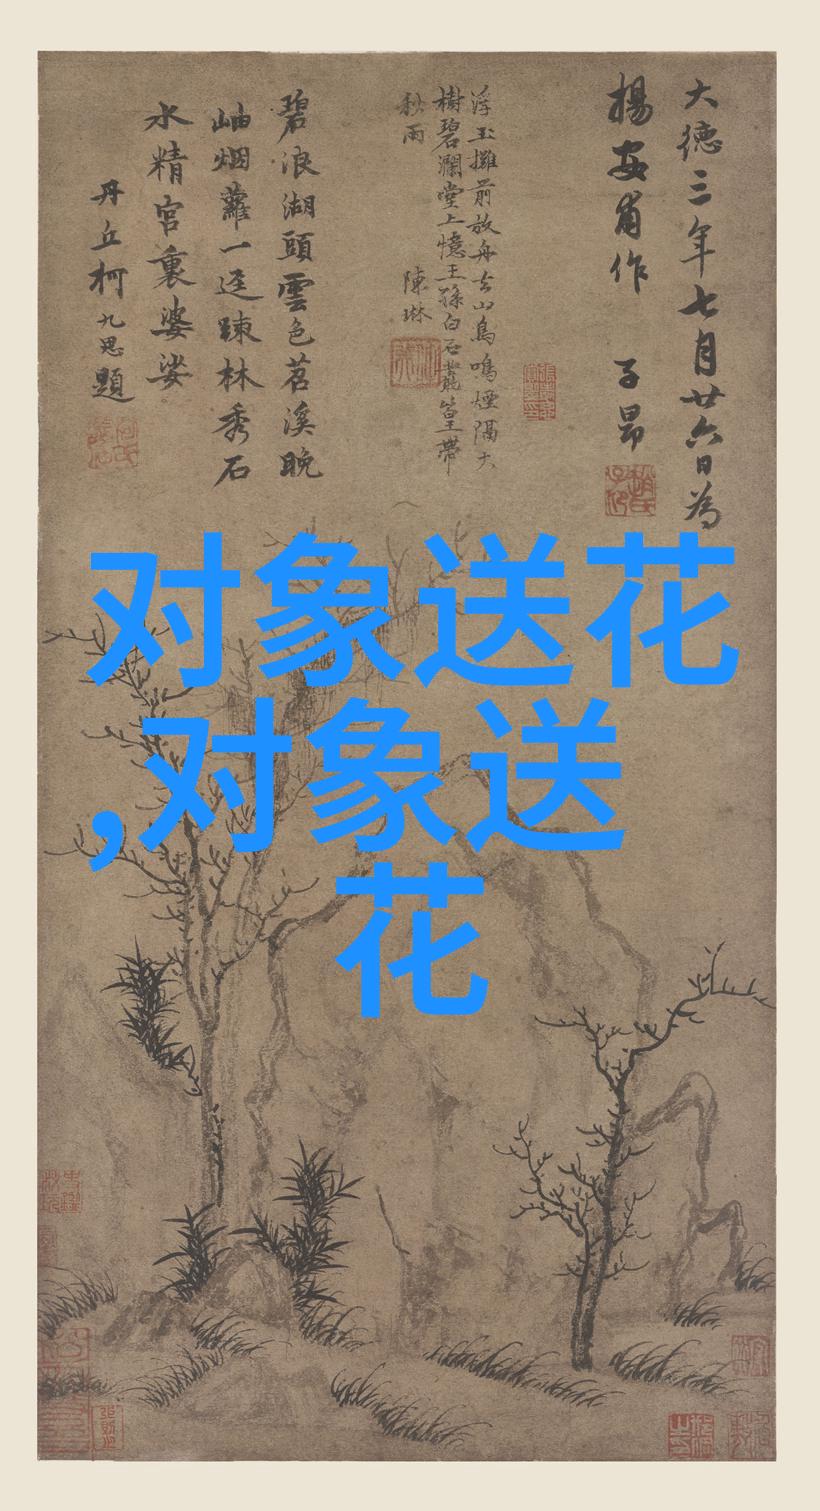 大德三年七月廿六日為
楊安甫作 子昂
浮玉攤前放舟去山鳥鳴煙隔大
樹碧瀾堂上憶王孫白石叢篁帶
秋雨 陳琳
碧浪湖頭雲色苕溪晚
岫烟蘿一逕踈林秀石
水精宮裏婆娑
丹丘柯九思題
对象送花
,对象送
花